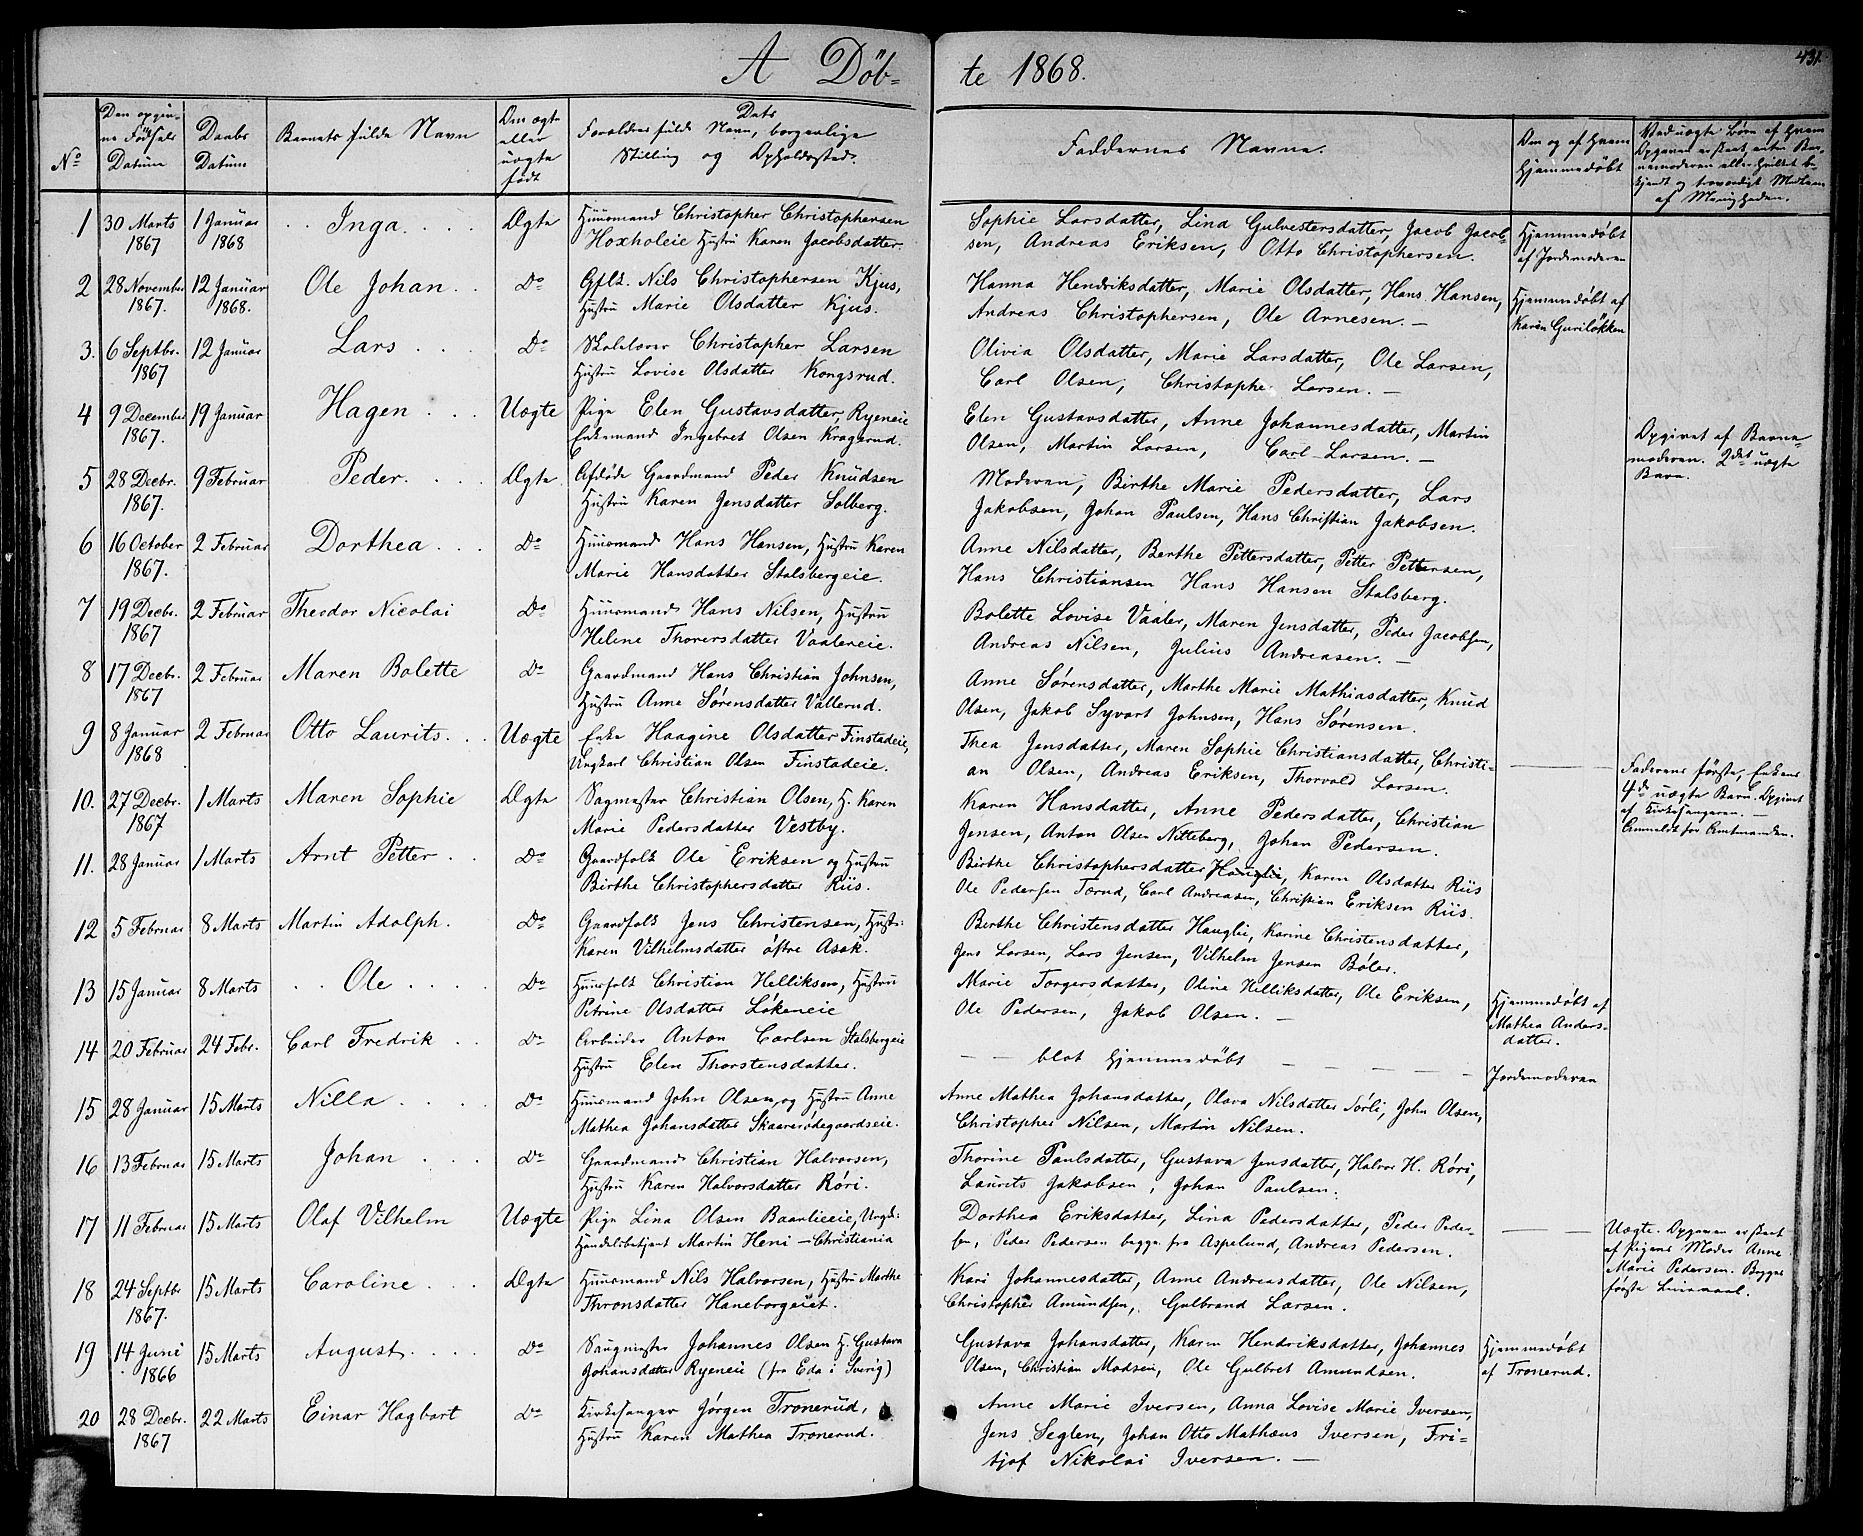 A Döb-
te 1868.
431.
No
Den opgiv-
ne Födsels
Datum
Daabs
Datum
Barnets fulde Navn
Om ægte
eller
uægte
födt
Dets
Forældres fulde Navn, borgerlige
Stilling og Opholdssted.
Faddernes Navne.
Om og af Hvem
Hjemmedöbt
Ved uægte Börn af Hvem
Opgaven er skeet, enten Bar-
nemoderen eller Hvilket be-
kjendt og troværdigt Medlem
af Menigheden.
1 30 Marts 1 Januar Inga Ægte Huusmand Christopher Christophersen Sophie Larsdatter, Lina Gulvestersdatter, Jacob Jacob- Hjemmedöbt
1867 1868 Hoxholeie Hustru Karen Jacobsdatter. sen, Andreas Eriksen, Otto Christophersen. af Jordemoderen
2 28 November 12 Januar Ole Johan Do Gflk. Nils Christophersen Kjus, Hanna Hendriksdatter, Marie Olsdatter, Hans Hansen, Hjemmedöbt af
1867. 1868. Hustru Marie Olsdatter Kjus. Andreas Christophersen, Ole Arnesen. — Karen Gurilökken
3. 6 Septbr. 12 Januar Lars Do Skolelærer Christopher Larsen Olivia Olsdatter, Marie Larsdatter, Ole Larsen,
1867 Hustru Lovise Olsdatter Kongsrud. Carl Olsen, Christopher Larsen. —
4 9 December 19 Januar Hagen Uægte Pige Elen Gustavsdatter Ryeneie Elen Gustavsdatter, Anne Johannesdatter, Martin Opgivet af Barne-
1867. Enkemand Ingebret Olsen Kragsrud. Olsen, Martin Larsen, Carl Larsen. — moderen. 2det uægte
Barn.
5 28 Decbr. 9 Februar Peder Ægte Afdöde Gaardmand Peder Knudsen Moderen, Birthe Marie Pedersdatter, Lars
1867. Hustru Karen Jensdatter Solberg. Jakobsen, Johan Paulsen, Hans Christian Jakobsen.
6 16 October 2 Februar Dorthea Do Huusmand Hans Hansen, Hustru Karen Anne Nilsdatter, Berthe Pettersdatter, Petter Pettersen,
1867. Marie Hansdatter Stalsbergeie. Hans Christiansen Hans Hansen Stalsberg.
7 19 Decbr. 2 Februar Theodor Nicolai Do Huusmand Hans Nilsen, Hustru Bolette Lovise Vaaler, Maren Jensdatter, Peder Jacobsen,
1867 Helene Thorersdatter Vaalereie. Andreas Nilsen, Julius Andreasen. —
8 17 Decbr. 2 Februar Maren Bolette Do Gaardmand Hans Christian Johnsen, Anne Sørensdatter, Marthe Marie Mathiasdatter, Knud
1867 Hustru Anne Sørensdatter Vallerud. Olsen, Jakob Syvart Johnsen, Hans Sørensen.
9 8 Januar 2 Februar Otto Laurits Uægte Enke Haagine Olsdatter Finstadeie, Thea Jensdatter, Maren Sophie Christiansdatter, Christi- Faderens første, Enkens
1868 Ungkarl Christian Olsen Finstadeie. an Olsen, Andreas Eriksen, Thorvald Larsen. 4de uægte Barn. Opgivet
af Kirkesangeren. —
Anmeldt for Amtmanden.
10. 27 Decbr. 1 Marts Maren Sophie Ægte Sagmester Christian Olsen, H. Karen Karen Hansdatter, Anne Pedersdatter, Christian
1867 Marie Pedersdatter Vestby. Jensen, Anton Olsen Nitteberg, Johan Pedersen.
11. 28 Januar 1 Marts Arnt Petter Do Gaardfolk Ole Eriksen og Hustru Birthe Christophersdatter Hauglie, Karen Olsdatter Riis
Birthe Christophersdatter Riis. Ole Pedersen Torud, Carl Andreasen, Christian Eriksen Riis.
12 5 Februar 8 Marts Martin Adolph. Do Gaardfolk Jens Christensen, Hustr: Berthe Christensdatter Hauglie, Karine Christensdatter,
Karen Vilhelmsdatter östre Asak. Jens Larsen, Lars Jensen, Vilhelm Jensen Böler.
13 15 Januar 8 Marts Ole Do Huusfolk Christian Helliksen, Hustru Marie Torgersdatter, Oline Helliksdatter, Ole Eriksen, Hjemmedöbt af
Petrine Olsdatter Lökeneie Ole Pedersen, Jakob Olsen. — Mathea Anders-
datter.
14 20 Februar 24 Febr. Carl Fredrik Do Arbeider Anton Carlsen Stalsbergeie — — blot hjemmedöbt — — — — Jordemoderen
Hustru Elen Thorstensdatter.
15 28 Januar 15 Marts Nilla Do Huusmand John Olsen, og Hustru Anne Anne Mathea Johansdatter, Olava Nilsdatter Sørli, John Olsen,
Mathea Johansdatter Skaarerödegaardseie. Christopher Nilsen, Martin Nilsen.
16 13 Februar 15 Marts Johan Do Gaardmand Christian Halvorsen, Thorine Paulsdatter, Gustava Jensdatter, Halvor H. Röri,
Hustru Karen Halvorsdatter Röri. Laurits Jakobsen, Johan Paulsen.
17 11 Februar 15 Marts Olaf Vilhelm Uægte Pige Lina Olsen Baarlieeie, Ungk: Dorthea Eriksdatter, Lina Pedersdatter, Peder Peder- Uægte. Opgaven er skeet
Handelsbetjent Martin Heni — Christiania sen, Peder Pedersen begge fra Aspelund, Andreas Pedersen. af Pigens Moder Anne
Marie Pedersen. Begges
første Leiermaal.
18 24 Septbr 15 Marts Caroline Ægte Huusmand Nils Halvorsen, Hustru Marthe Kari Johannesdatter, Anne Andreasdatter, Ole Nilsen,
1867. Thronsdatter Haneborgeiet. Christopher Amundsen, Gulbrand Larsen.
19 14 Juni 15 Marts August Do Saugmester Johannes Olsen H. Gustava Gustava Johansdatter, Karen Hendriksdatter, Johannes Hjemmedöbt
1866 Johansdatter Ryeneie (fra Eda i Sverig) Olsen, Christian Madsen, Ole Gulbret Amundsen. af Tronerud.
20 28 Decbr. 22 Marts Einar Hagbart Do Kirkesanger Jørgen Tronerud, Anne Marie Iversen, Anna Lovise Marie Iversen,
1867 Hustru Karen Mathea Tronerud. Jens Seglen, Johan Otto Mathæus Iversen, Fri-
tjof Nikolai Iversen. —